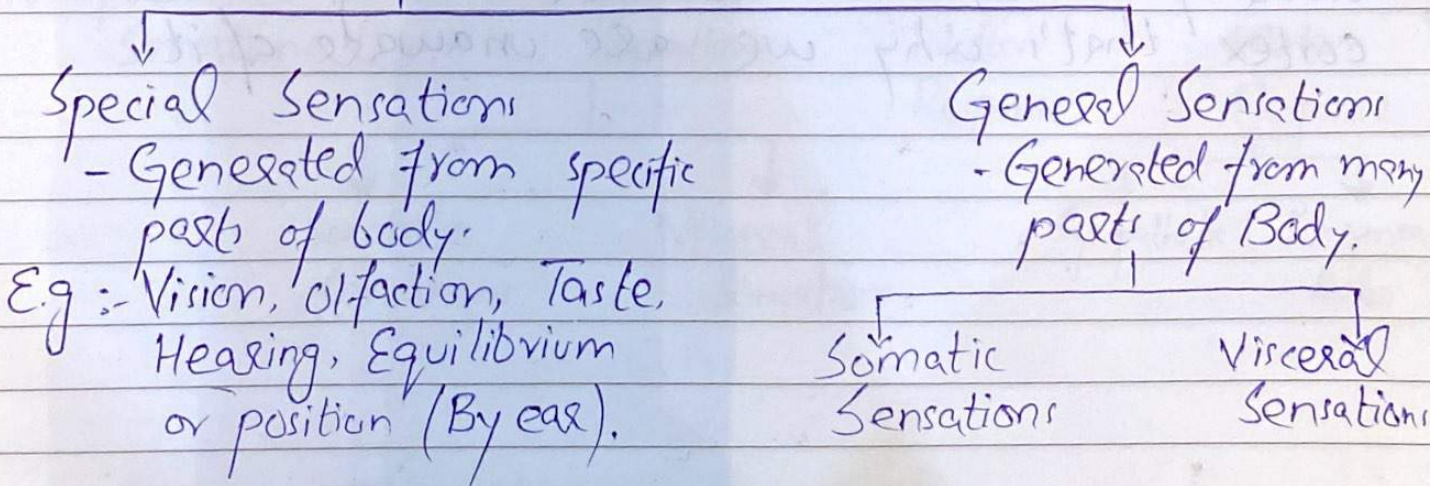 Special Sensations
- Generated from specific
parts of body.
Eg :- Vision, olfaction, Taste,
Hearing, Equilibrium
or position (By ear).
General Sensations
- Generated from many
parts of Body.
Somatic
Sensations
Visceral
Sensations